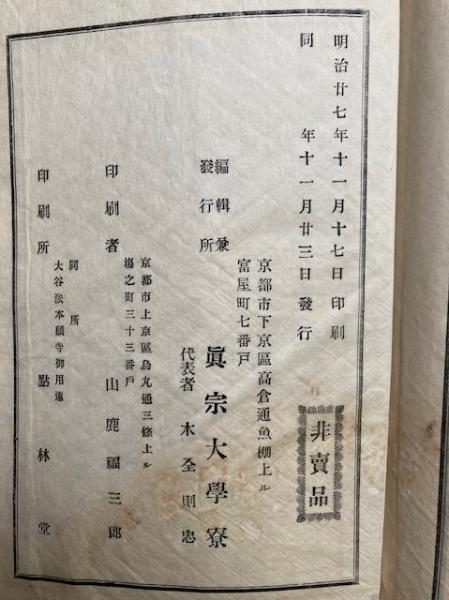 明治廿七年十一月十七日印刷
同年十一月廿三日發行
非賣品
京都市下京區高倉通魚棚上ル
富屋町七番戸
編輯兼
發行所
眞宗大學寮
代表者 木全則忠
京都市上京區烏丸通三條上ル
場之町三十三番戸
印刷者 山鹿福三郎
同所
大谷派本願寺御用達
印刷所 點林堂